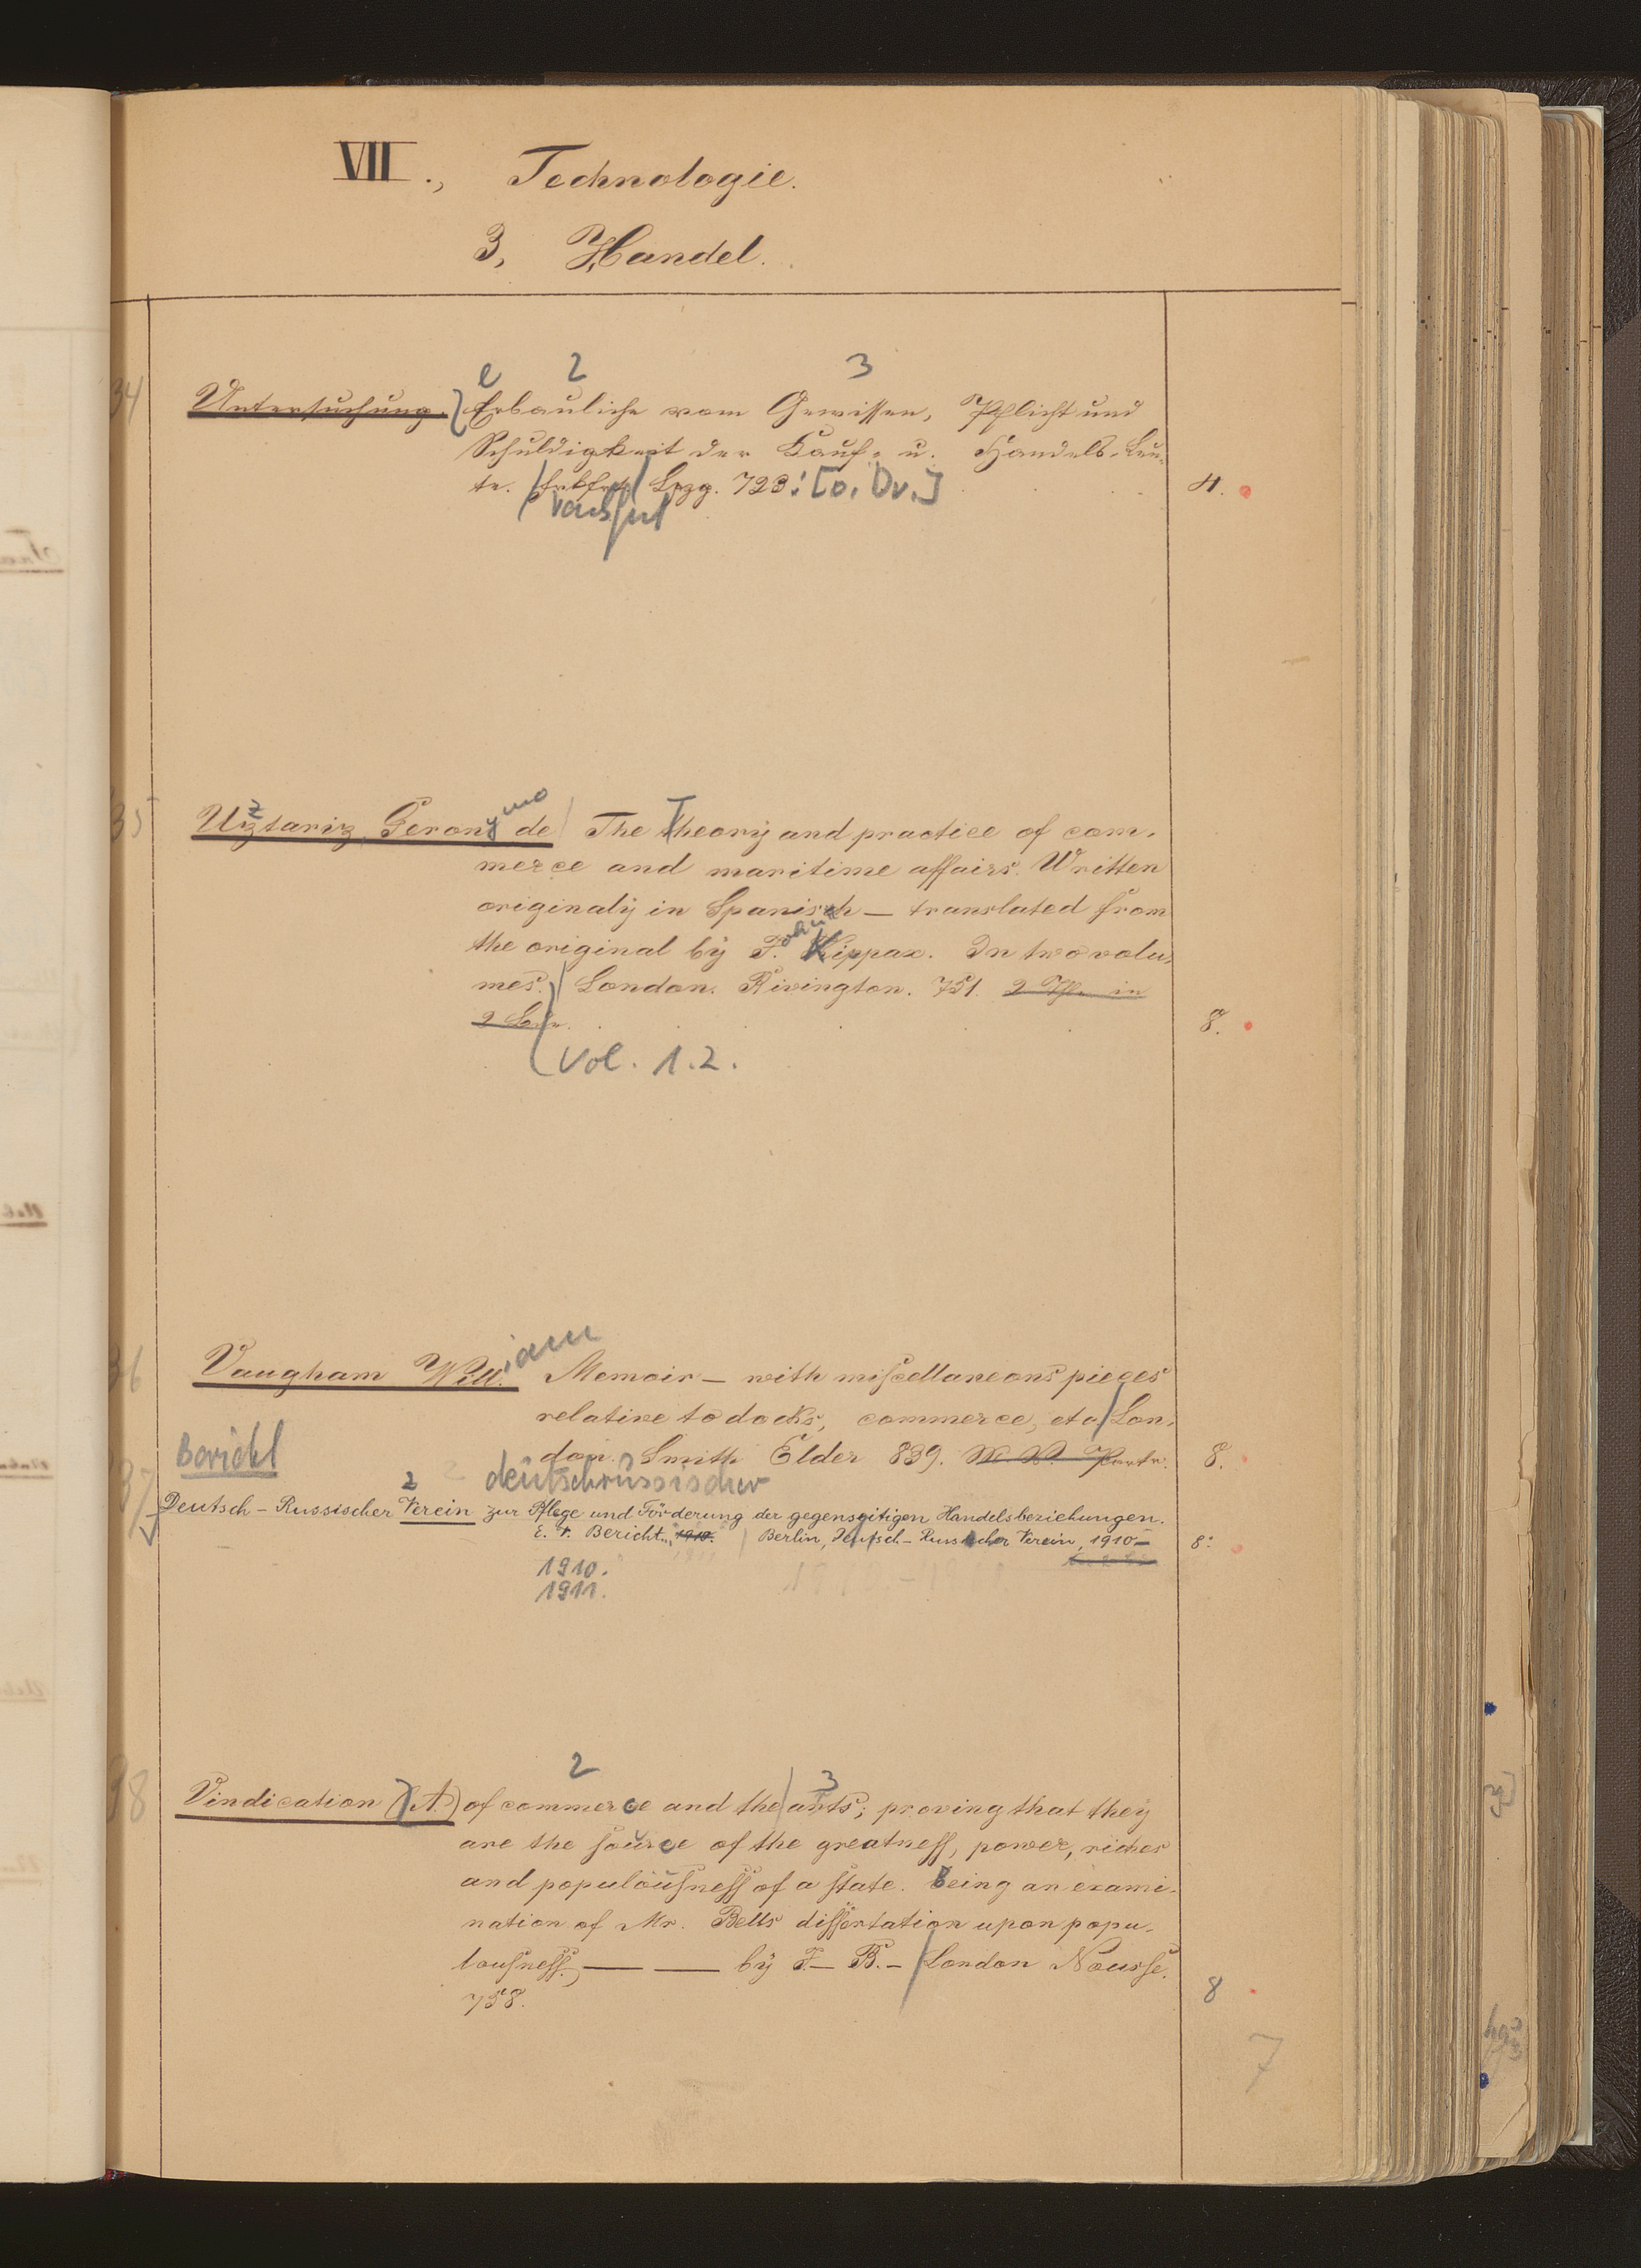 VII., Technologie.
3, Handel.
e 2 3
34 Untersuchung. Erbauliche vom Gewissen, Pflicht und
Schuldigkeit der Kauf- u. Handels-Leu-
te. Lpzg. 723. [o. Dr.] 4.
35 Uztariz, Geronymo de The Theory and practice of com-
merce and maritime affairs. Written
originaly in Spanish — translated from
the original by John Kippax. In two volu-
mes. London. Rivington. 751. 2 Th. in
2 8.
Vol. 1.2.
36 Vaugham William Memoir — with miscellaneous pieces
relative to docks, commerce, etc. Lon-
don. Smith Elder 839. 8.
Bericht
2 deutschrussischer
37 Deutsch-Russischer Verein zur Pflege und Förderung der gegenseitigen Handelsbeziehungen.
E. V. Bericht. 1910. Berlin, Deutsch-Russischer Verein, 1910– 8:
1910.
1911.
2 3
38 Vindication (A) of commerce and the arts; proving that they
are the source of the greatness, power, riches
and populousness of a state. Being an exami-
nation of Mr. Bells dissertation upon popu-
lousness. — — by I– B.– London Nourse.
758. 8
7